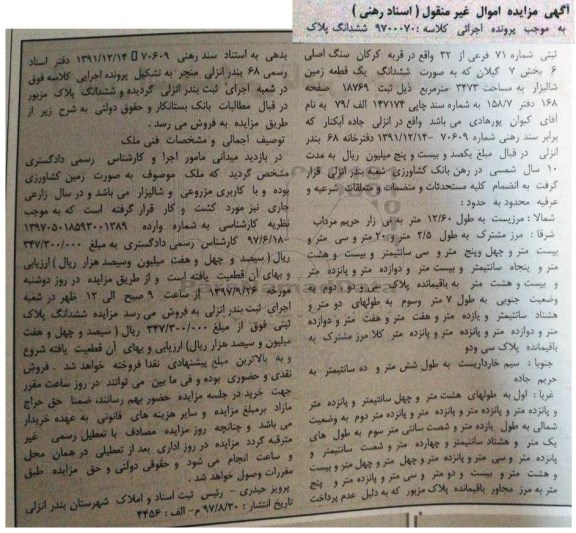 آگهی مزایده اموال غیر منقول ( اسناد رهنی )
به موجب پرونده اجرائی کلاسه : ۹۷۰۰۰۷۰ ششدانگ پلاک
ثبتی شماره ۷۱ فرعی از ۳۲ واقع در قریه کرکان سنگ اصلی
۶ بخش ۷ گیلان که به صورت ششدانگ یک قطعه زمین
شالیزار به مساحت ۳۴۷۳ مترمربع ذیل ثبت ۱۸۷۶۹ صفحه
۱۶۸ دفتر ۱۵۸/۷ به شماره سند چاپی ۱۴۷۱۷۴ الف /۷۹ به نام
آقای کیوان پورهادی می باشد واقع در انزلی جاده آبکنار که
برابر سند رهنی شماره ۷۰۶۰۹ - ۱۳۹۱/۱۲/۱۴ دفترخانه ۶۸ بندر
انزلی در قبال مبلغ یکصد و بیست و پنج میلیون ریال به مدت
۱۰ سال شمسی در رهن بانک کشاورزی شعبه بندر انزلی قرار
گرفت به انضمام کلیه مستحدثات و منضمات و متعلقات شرعیه و
عرفیه محدود به حدود :
شمالا : مرزیست به طول ۱۲/۶۰ متر به نی زار حریم مرداب
شرقا : مرز مشترک به طول ۲/۵ متر و ۲۰ متر و سی متر و
بیست متر و چهل وپنج متر و سی سانتیمتر و بیست و هشت
متر و پنجاه سانتیمتر و بیست متر و دوازده متر و پانزده متر
و بیست و هشت متر به باقیمانده پلاک سی و دو دوم به
وضعیت جنوبی به طول ۷ متر وسوم به طولهای دو متر و
هشتاد سانتیمتر و یازده متر و هفت متر و هفت متر و دوازده
متر و دوازده متر و پانزده متر و پانزده متر کلا مرز مشترک به
باقیمانده پلاک سی ودو
جنوبا : سیم خارداریست به طول شش متر و ده سانتیمتر به
حریم جاده
غربا : اول به طولهای هشت متر و چهل سانتیمتر و پانزده متر
و پانزده متر و پانزده متر و پانزده متر و پانزده متر دوم به وضعیت
شمالی به طول یازده متر و شصت سانتی متر سوم به طول های
یک متر و هشتاد سانتیمتر و چهارده متر و شصت سانتیمتر و
پانزده متر و سی متر و پانزده متر و چهل متر و چهل متر و بیست
و هشت متر و بیست و دو متر و سی متر و پانزده متر و پنج
متر به مرز مجاور باقیمانده پلاک مزبور که به دلیل عدم پرداخت
بدهی به استناد سند رهنی ۷۰۶۰۹ ۱۳۹۱/۱۲/۱۴ دفتر اسناد
رسمی ۶۸ بندر انزلی منجر به تشکیل پرونده اجرایی کلاسه فوق
در شعبه اجرای ثبت بندر انزلی گردیده و ششدانگ پلاک مزبور
در قبال مطالبات بانک بستانکار و حقوق دولتی به شرح زیر از
طریق مزایده به فروش می رسد .
توصیف اجمالی و مشخصات فنی ملک
در بازدید میدانی مامور اجرا و کارشناس رسمی دادگستری
مشخص گردید که ملک موصوف به صورت زمین کشاورزی
بوده و با کاربری مزروعی و شالیزار می باشد و در سال زراعی
جاری نیز مورد کشت و کار قرار گرفته است که به موجب
نظریه کارشناسی به شماره وارده ۱۳۹۷۰۵۰۱۸۵۹۳۰۰۱۳۸۹
-۹۷/۶/۱۸ کارشناس رسمی دادگستری به مبلغ ۳۴۷/۳۰۰/۰۰۰
ریال ( سیصد و چهل و هفت میلیون وسیصد هزار ریال ) ارزیابی
و بهای آن قطعیت یافته است و از طریق مزایده در روز دوشنبه
مورخه ۱۳۹۷/۹/۲۶ از ساعت ۹ صبح الی ۱۲ ظهر در شعبه
اجرای ثبت بندر انزلی به فروش می رسد مزایده ششدانگ پلاک
ثبتی فوق از مبلغ ۳۴۷/۳۰۰/۰۰۰ ریال ( سیصد و چهل و هفت
میلیون و سیصد هزار ریال) ارزیابی و بهای آن قطعیت یافته شروع
و به بالاترین مبلغ پیشنهادی نقدا فروخته خواهد شد . فروش
نقدی و حضوری بوده و فی ما بین می توانند در روز ساعت مقرر
جهت خرید در جلسه مزایده حضور بهم رسانند، ضمنا حق حراج
مازاد برمبلغ مزایده و سایر هزینه های قانونی به عهده خریدار
می باشد و چنانچه روز مزایده مصادف با تعطیل رسمی غیر
مترقبه گردد مزایده در روز اداری بعد از تعطیلی در همان محل
و ساعت انجام می شود و حقوقی دولتی و حق مزایده طبق
مقررات وصول خواهد شد .
پرویز حیدری - رئیس ثبت اسناد و املاک شهرستان بندر انزلی
تاریخ انتشار : ۹۷/۸/۳۰ م- الف : ۴۴۵۶